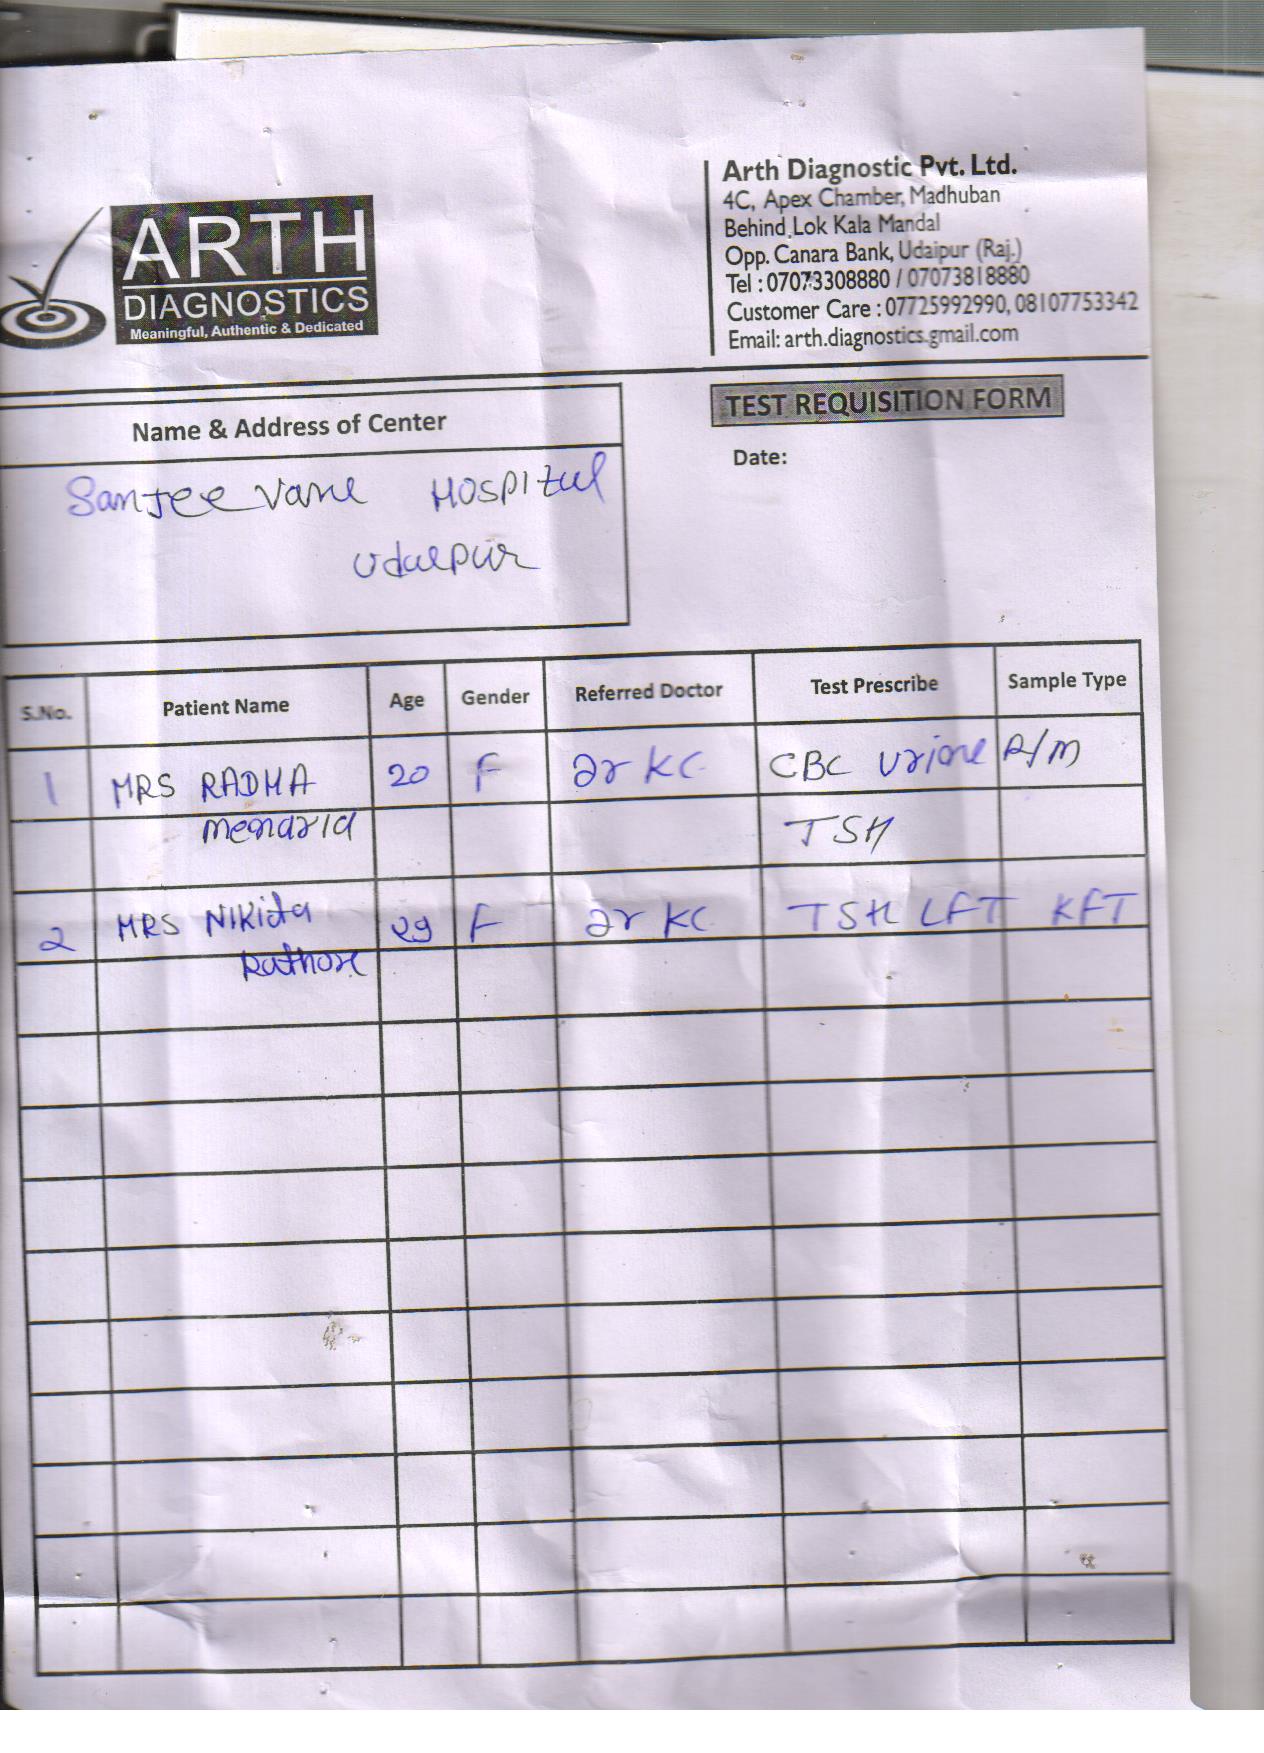 ARTH
DIAGNOSTICS
Meaningful, Authentic & Dedicated
Arth Diagnostic Pvt. Ltd.
4C, Apex Chamber, Madhuban
Behind Lok Kala Mandal
Opp. Canara Bank, Udaipur (Raj.)
Tel : 07073308880 / 07073818880
Customer Care : 07725992990, 08107753342
Email: arth.diagnostics.gmail.com
Name & Address of Center
TEST REQUISITION FORM
Date:
SanJeevani HOSPITUL
Udaipur
S.No. Patient Name Age Gender Referred Doctor Test Prescribe Sample Type
1 MRS RADHA 20 F Dr KC CBC Urine R/M
menaria TSH
2 MRS Nikita 29 F Dr KC TSH LFT KFT
Rathore